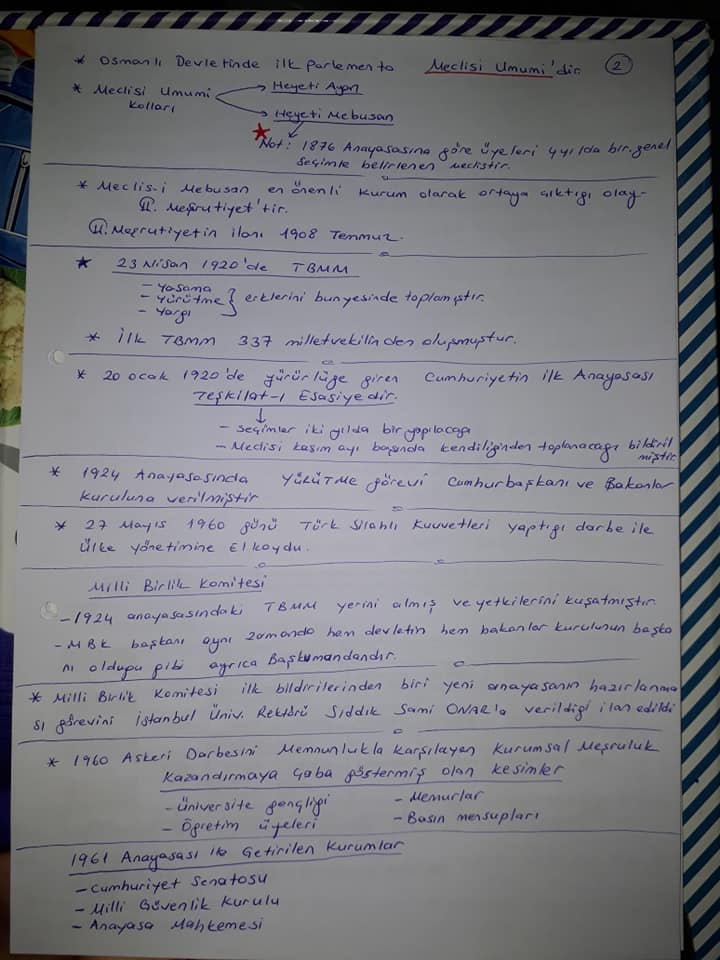 * Osmanlı Devletinde ilk parlemento Meclisi Umumi'dir. 2
* Meclisi Umumi kolları
→ Heyeti Ayan
→ Heyeti Mebusan
* Not: 1876 Anayasasına göre üyeleri 4 yılda bir genel
seçimle belirlenen meclistir.
* Meclis-i Mebusan en önemli kurum olarak ortaya çıktığı olay-
II. Meşrutiyet'tir.
II. Meşrutiyetin ilanı 1908 Temmuz.
* 23 Nisan 1920'de TBMM
- Yasama
- Yürütme } erklerini bünyesinde toplamıştır.
- Yargı
* İlk TBMM 337 milletvekilinden oluşmuştur.
* 20 ocak 1920'de yürürlüğe giren Cumhuriyetin ilk Anayasası
Teşkilat-ı Esasiyedir.
↓
- seçimler iki yılda bir yapılacağı
- Meclisi kasım ayı başında kendiliğinden toplanacağı bildiril
miştir
* 1924 Anayasasında YÜRÜTME görevi Cumhurbaşkanı ve Bakanlar
Kuruluna verilmiştir
* 27 Mayıs 1960 günü Türk Silahlı Kuvvetleri yaptığı darbe ile
ülke yönetimine El koydu.
Milli Birlik Komitesi
- 1924 anayasasındaki TBMM yerini almış ve yetkilerini kuşatmıştır.
- MBK başkanı aynı zamanda hem devletin hem bakanlar kurulunun başka
nı olduğu gibi ayrıca Başkumandandır.
* Milli Birlik Komitesi ilk bildirilerinden biri yeni anayasanın hazırlanma
sı görevini İstanbul Üniv. Rektörü Sıddık Sami ONAR'a verildiği ilan edildi
* 1960 Askeri Darbesini Memnunlukla Karşılayan Kurumsal Meşruluk
Kazandırmaya çaba göstermiş olan kesimler
- Üniversite gençliği - Memurlar
- Öğretim üyeleri - Basın mensupları
1961 Anayasası ile Getirilen Kurumlar
- Cumhuriyet Senatosu
- Milli Güvenlik Kurulu
- Anayasa Mahkemesi